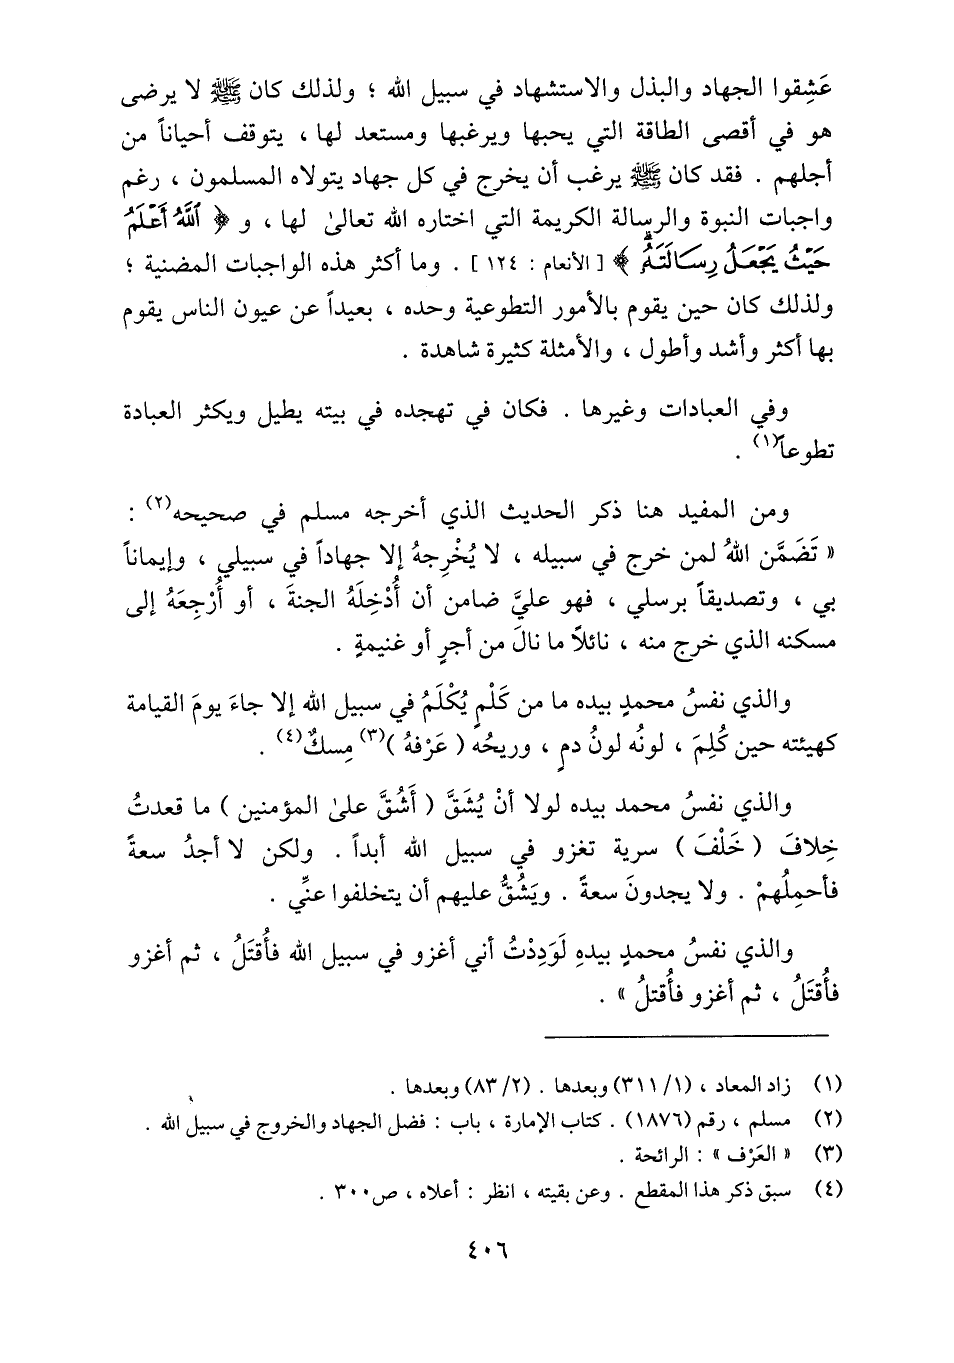 عَشِقوا الجهاد والبذل والاستشهاد في سبيل الله ؛ ولذلك كان ﷺ لا يرضى
هو في أقصى الطاقة التي يحبها ويرغبها ومستعد لها ، يتوقف أحياناً من
أجلهم . فقد كان ﷺ يرغب أن يخرج في كل جهاد يتولاه المسلمون ، رغم
واجبات النبوة والرسالة الكريمة التي اختاره الله تعالىٰ لها ، و ﴿ ٱللَّهُ أَعْلَمُ
حَيْثُ يَجْعَلُ رِسَالَتَهُۥ ﴾ [ الأنعام : ١٢٤ ] . وما أكثر هذه الواجبات المضنية ؛
ولذلك كان حين يقوم بالأمور التطوعية وحده ، بعيداً عن عيون الناس يقوم
بها أكثر وأشد وأطول ، والأمثلة كثيرة شاهدة .
وفي العبادات وغيرها . فكان في تهجده في بيته يطيل ويكثر العبادة
تطوعاً(١) .
ومن المفيد هنا ذكر الحديث الذي أخرجه مسلم في صحيحه(٢) :
« تَضَمَّن اللهُ لمن خرج في سبيله ، لا يُخْرِجهُ إلا جهاداً في سبيلي ، وإيماناً
بي ، وتصديقاً برسلي ، فهو عليَّ ضامن أن أُدْخِلَهُ الجنةَ ، أو أُرْجِعَهُ إلى
مسكنه الذي خرج منه ، نائلاً ما نالَ من أجرٍ أو غنيمةٍ .
والذي نفسُ محمدٍ بيده ما من كَلْمٍ يُكْلَمُ في سبيل الله إلا جاءَ يومَ القيامة
كهيئته حين كُلِمَ ، لونُه لونُ دمٍ ، وريحُه ( عَرْفهُ )(٣) مِسكٌ(٤) .
والذي نفسُ محمد بيده لولا أنْ يُشَقَّ ( أَشُقَّ علىٰ المؤمنين ) ما قعدتُ
خِلافَ ( خَلْفَ ) سرية تغزو في سبيل الله أبداً . ولكن لا أجدُ سعةً
فأحمِلُهمْ . ولا يجدونَ سعةً . ويَشُقُّ عليهم أن يتخلفوا عنِّي .
والذي نفسُ محمدٍ بيدهِ لَوَدِدْتُ أني أغزو في سبيل الله فأُقتَلُ ، ثم أغزو
فأُقتَلُ ، ثم أغزو فأُقتلُ » .
(١) زاد المعاد ، (١/ ٣١١) وبعدها . (٢/ ٨٣) وبعدها .
(٢) مسلم ، رقم (١٨٧٦) . كتاب الإمارة ، باب : فضل الجهاد والخروج في سبيل الله .
(٣) « العَرْف » : الرائحة .
(٤) سبق ذكر هذا المقطع . وعن بقيته ، انظر : أعلاه ، ص٣٠٠ .
٤٠٦